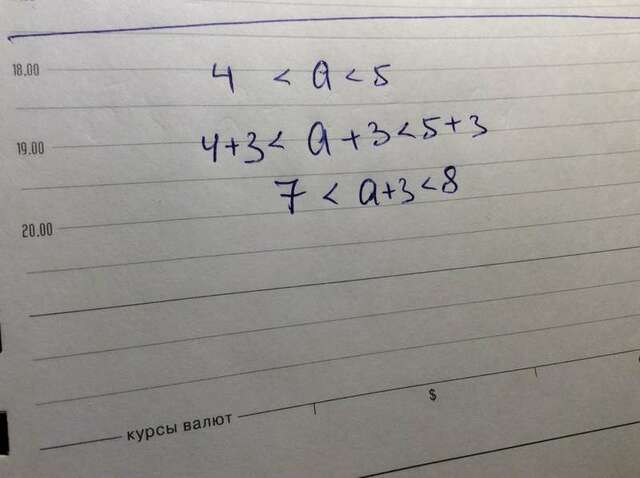 18.00 4 < a < 5
19.00 4+3 < a+3 < 5+3
7 < a+3 < 8
20.00
курсы валют $